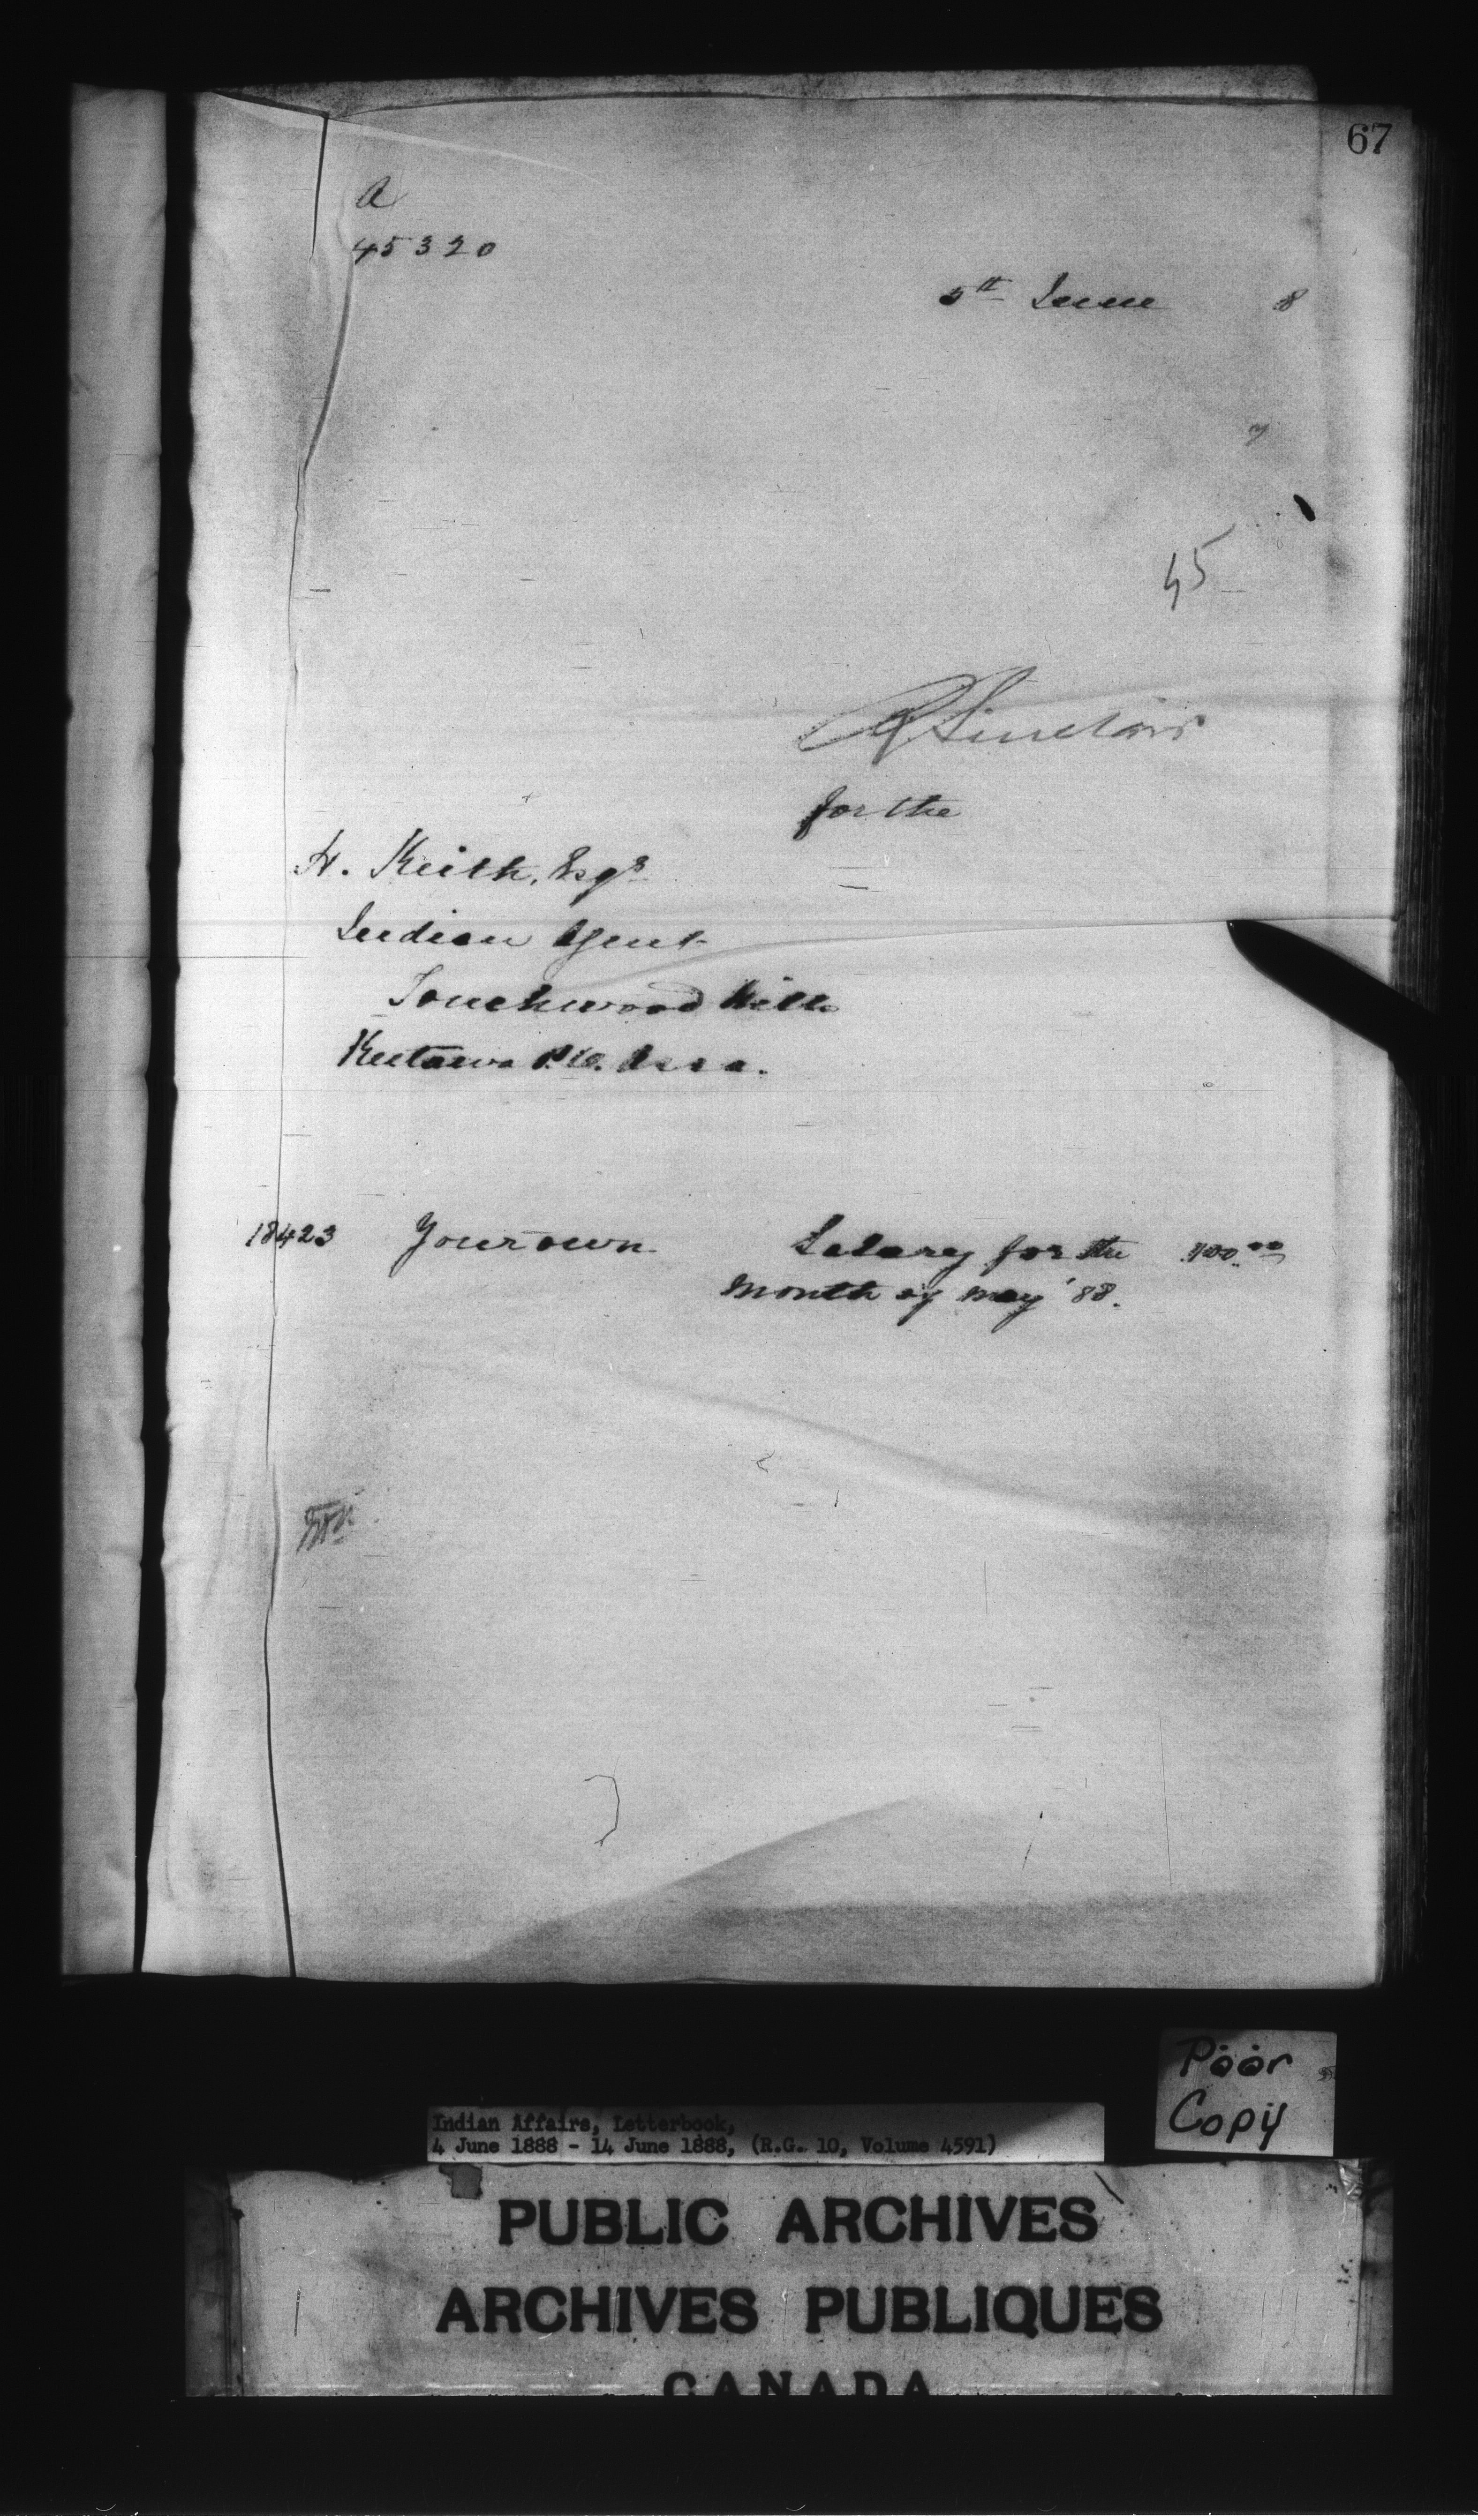 67
A
45320
5th June 8
45
R Sinclair
for the
H. Keith, Esqr
Indian Agent
Touchwood Hills
Kutawa P.O. Assa.
18423 Your own Salary for the 100.00
month of May '88.
Poor
Copy
Indian Affairs, Letterbook,
4 June 1888 - 14 June 1888, (R.G. 10, Volume 4591)
PUBLIC ARCHIVES
ARCHIVES PUBLIQUES
CANADA